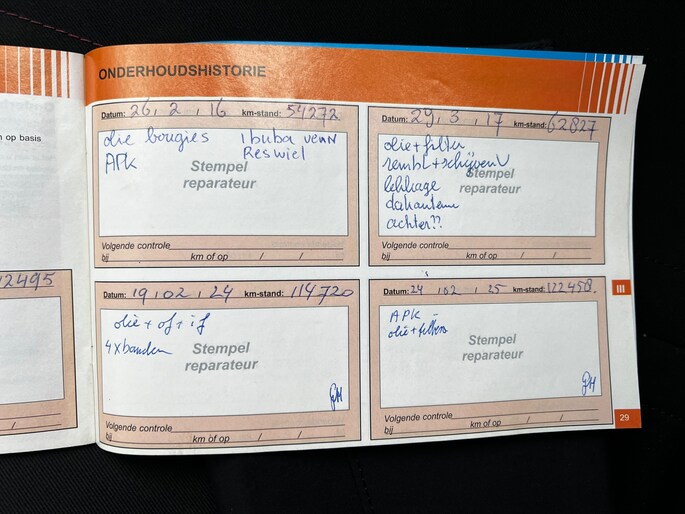 n op basis
12495
/
/
ONDERHOUDSHISTORIE
Datum: 26, 2, 16 km-stand: 54272
olie bougies
APK
Stempel
reparateur
Volgende controle
bij km of op / /
Datum: 29, 3, 17 km-stand: 62827
olie + filter
rembl + schijven V
Stempel
reparateur
lekkage
dakantenne
achter??
Volgende controle
bij km of op / /
Datum: 19, 02, 24 km-stand: 114720
olie + of + if
4x banden
Stempel
reparateur
GH
Volgende controle
bij km of op / /
Datum: 24, 02, 25 km-stand: 122458.
APK -
olie + filters
Stempel
reparateur
GH
Volgende controle
bij km of op / /
III
29